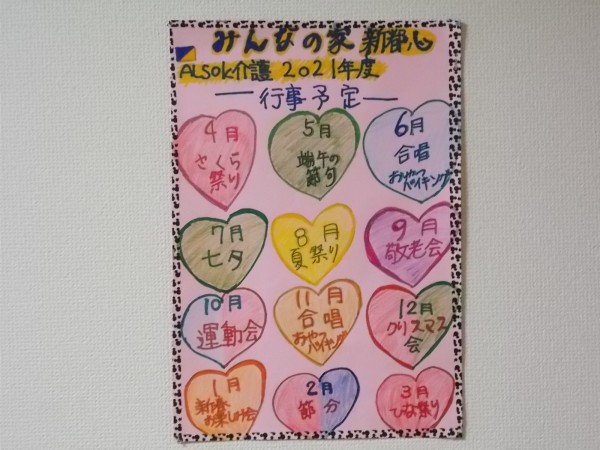 みんなの家 新都心
ALSOK介護 2021年度
行事予定
4月
さくら
祭り
5月
端午の
節句
6月
合唱
おやつ
バイキング
7月
七夕
8月
夏祭り
9月
敬老会
10月
運動会
11月
合唱
おやつ
バイキング
12月
クリスマス
会
1月
新春
お楽しみ会
2月
節分
3月
ひな祭り